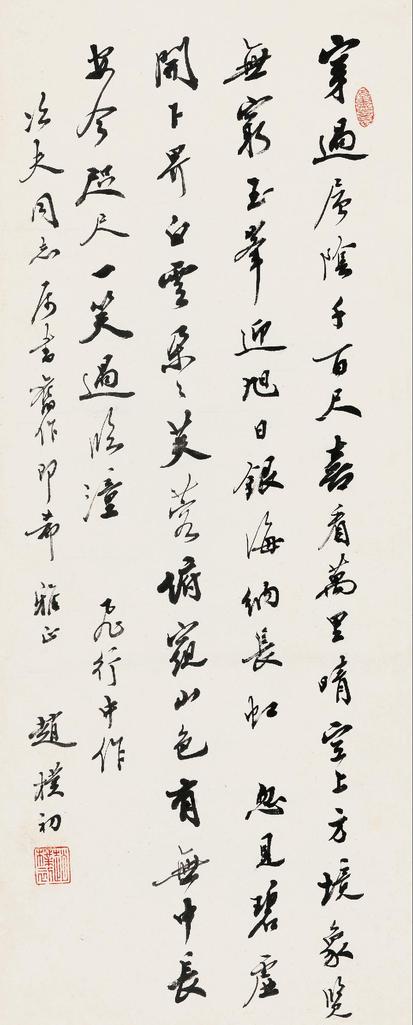 穿過層陰千百尺喜看萬里晴空上方境象覽
無窮玉峯迎旭日銀海納長虹 忽見碧虛
開下界白雲朵〻芙蓉俯窺山色有無中長
安今咫尺一笑過臨潼 飛行中作
夫同志属書舊作即希 雅正 趙樸初